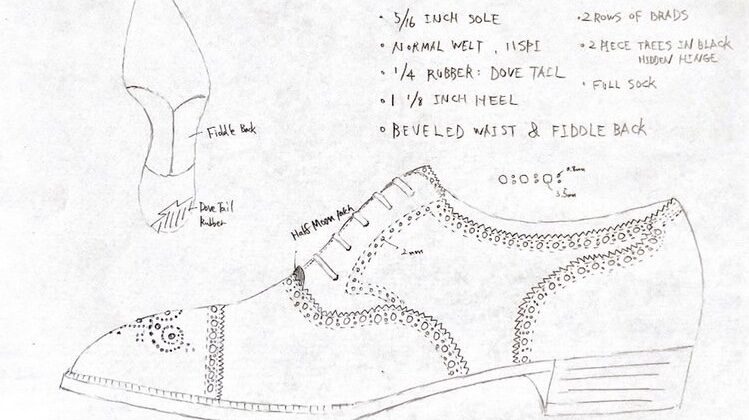 • 5/16 INCH SOLE
• NORMAL WELT, 11SPI
• 1/4 RUBBER: DOVE TAIL
• 1 1/8 INCH HEEL
• BEVELED WAIST & FIDDLE BACK
• 2 ROWS OF BRADS
• 2 PIECE TREES IN BLACK
HIDDEN HINGE
• FULL SOCK
Fiddle Back
Dove Tail
Rubber
Half Moon
2mm
5.5mm